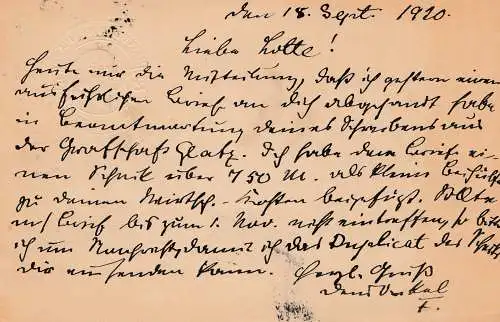 den 18. Sept. 1920.
Liebe Lotte!
Heute nur die Mitteilung, daß ich gestern einen
ausführlichen Brief an dich abgesandt habe
in Beantwortung deines Schreibens aus
der Grafschaft Glatz. Ich habe dem Brief ei-
nen Scheck über 750 M. als kleine Beihülfe
zu deinen Wirtsch.-Kosten beigefügt. Sollte
Brief bis zum 1. Nov. nicht eintreffen, so bitte
ich um Nachricht, damit ich das Duplicat des Schecks
dir einsenden kann. Herzl. Gruß
dein Onkel
F.